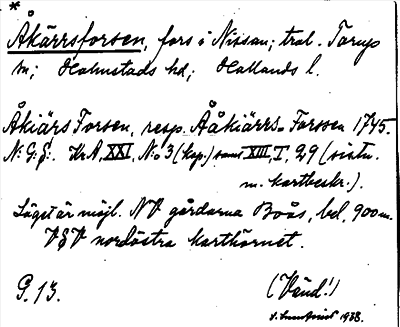 *
Åkärrsforsen, fors i Nissan; trol. Torups
sn; Halmstads hd; Hallands l.
Åkiärs Forsen, resp. Ååkiärrs Forssen 1745.
N: G. g: KrA, XXI, No 3 (kop.) samt XIII, I, 29 (sistn.
m. kartbeskr.).
Läget är möjl. NV gårdarna Boås, bel. 900 m.
VSV nordöstra karthörnet.
G. 13.
(Vänd!)
1938.